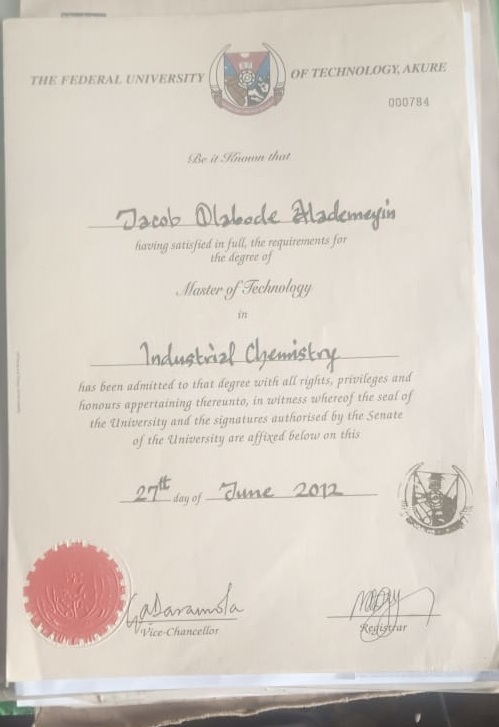 THE FEDERAL UNIVERSITY OF TECHNOLOGY, AKURE
000784
Be it Known that
Jacob Olabode Aladémeyin
having satisfied in full, the requirements for
the degree of
Master of Technology
in
Industrial Chemistry
has been admitted to that degree with all rights, privileges and
honours appertaining thereunto, in witness whereof the seal of
the University and the signatures authorised by the Senate
of the University are affixed below on this
27th day of June 2012
Vice-Chancellor
Registrar